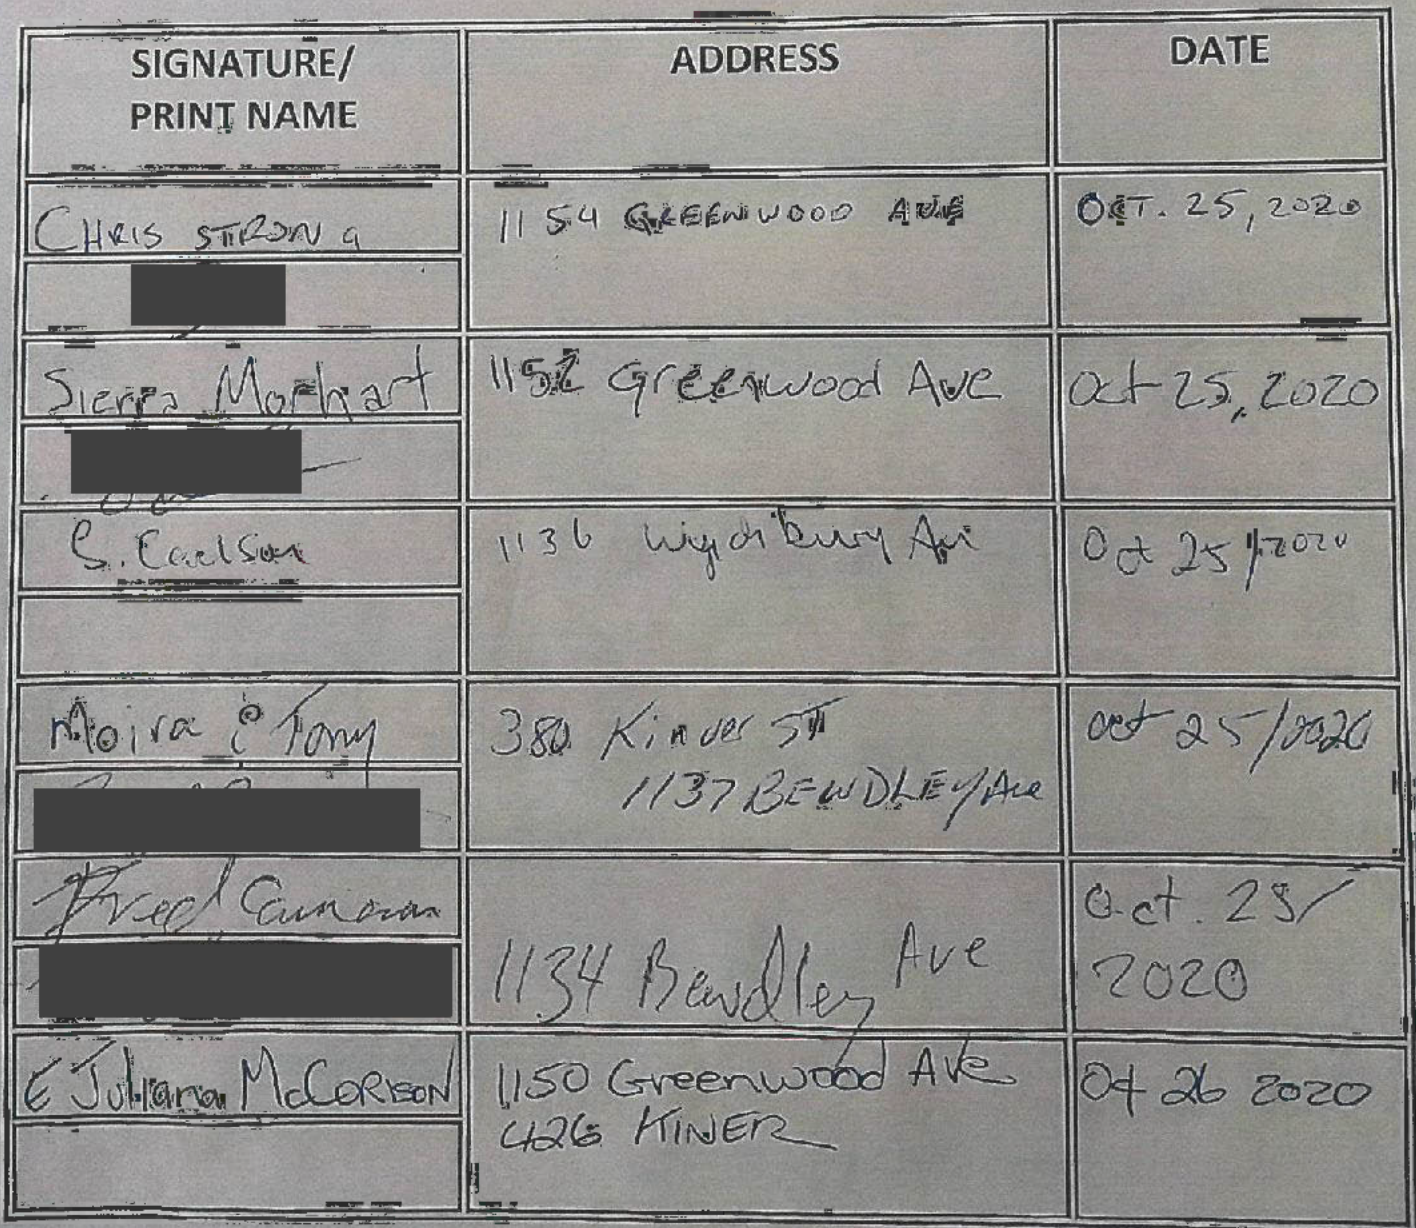 SIGNATURE/
PRINT NAME
ADDRESS
DATE
CHRIS STRONG
1154 GREENWOOD AVE
OCT. 25, 2020
Sierra
1152 Greenwood Ave
Oct 25, 2020
S. Carlson
1136 Ave
Oct 25/2020
Moira & Tony
380 Kinver ST
1137 BEWDLEY Ave
oct 25/2020
Fred
1134 Bewdley Ave
Oct. 25/
2020
E Juliana McCORISON
1150 Greenwood Ave
426 KINER
Oct 26 2020